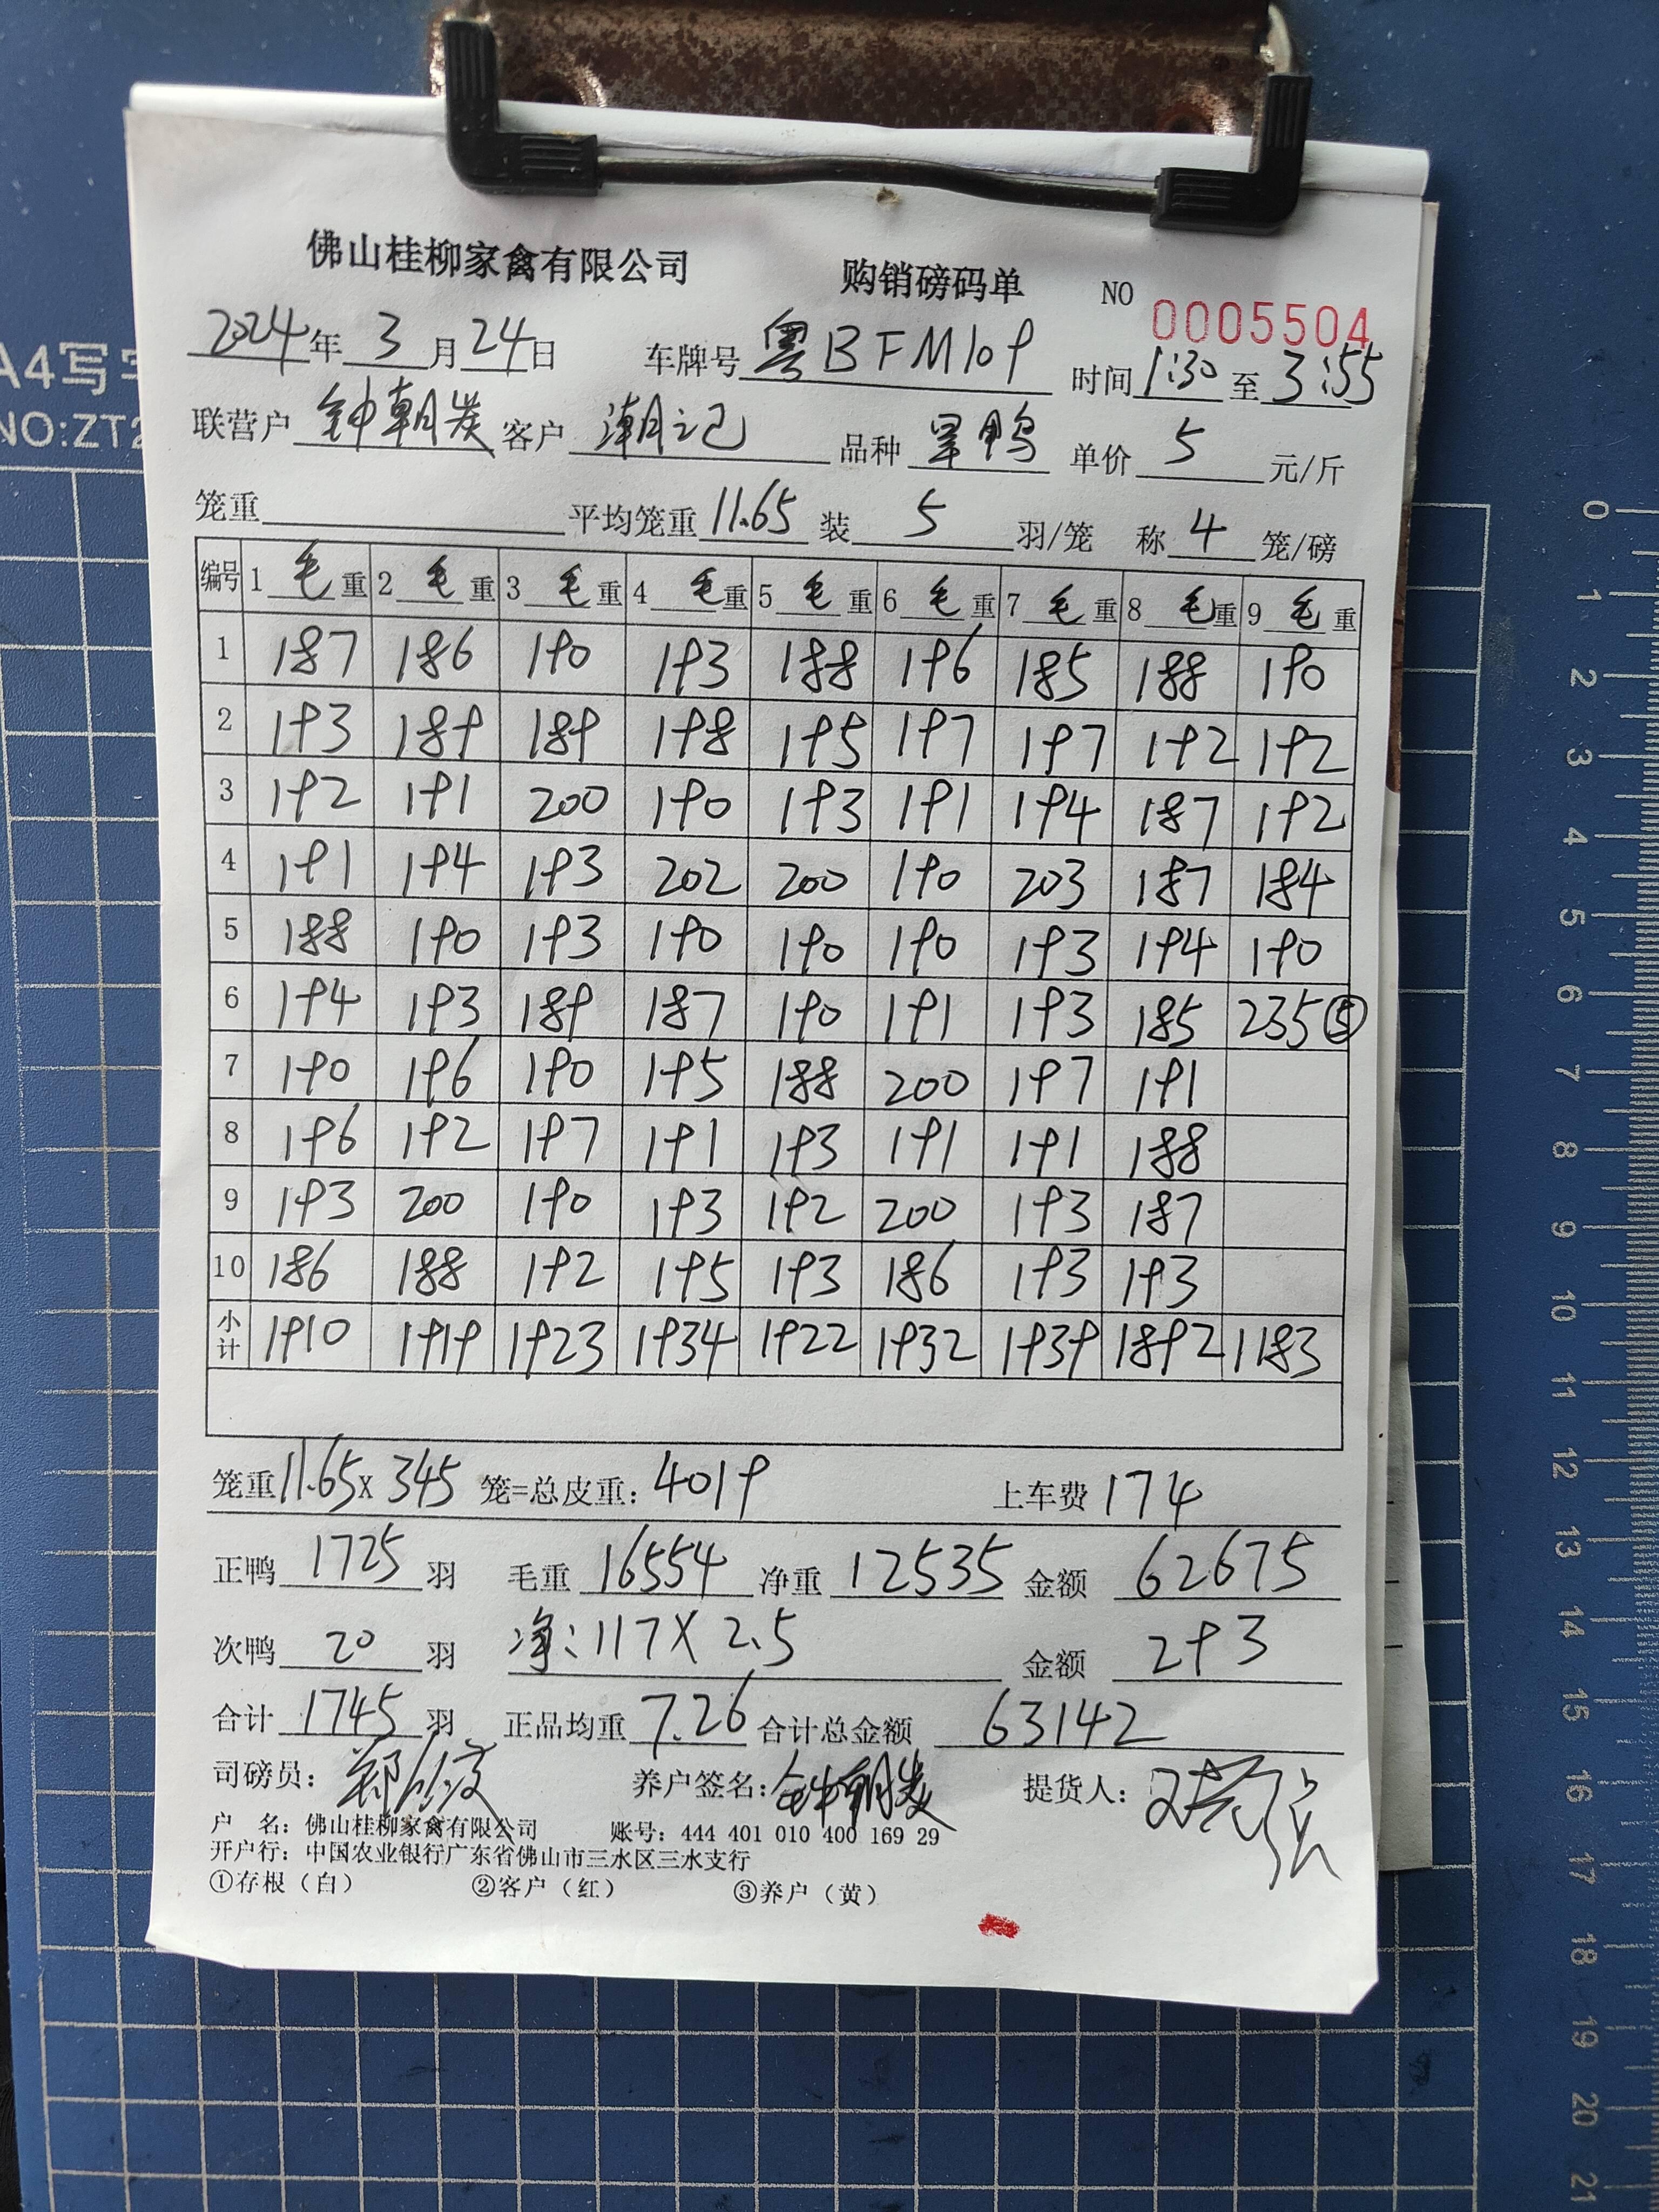 佛山桂柳家禽有限公司 购销磅码单 NO 0005504
2024年3月24日 车牌号 粤BFM109 时间 1:30 至 3:55
联营户 钟朝炭 客户 潮记 品种 旱鸭 单价 5 元/斤
笼重 平均笼重 11.65 装 5 羽/笼 称 4 笼/磅
编号 1 毛重 2 毛重 3 毛重 4 毛重 5 毛重 6 毛重 7 毛重 8 毛重 9 毛重
1 187 186 190 193 188 196 185 188 190
2 193 189 189 198 195 197 197 192 192
3 192 191 200 190 193 191 194 187 192
4 191 194 193 202 200 190 203 187 184
5 188 190 193 190 190 190 193 194 190
6 194 193 189 187 190 191 193 185 235⑤
7 190 196 190 195 188 200 197 191
8 196 192 197 191 193 191 191 188
9 193 200 190 193 192 200 193 187
10 186 188 192 195 193 186 193 193
小计 1910 1919 1923 1934 1922 1932 1939 1892 1183
笼重11.65x 345 笼=总皮重：4019 上车费 174
正鸭 1725 羽 毛重 16554 净重 12535 金额 62675
次鸭 20 羽 净：117X 2.5 金额 293
合计 1745 羽 正品均重 7.26 合计总金额 63142
司磅员： 养户签名：钟朝炭 提货人：
户 名：佛山桂柳家禽有限公司 账号：444 401 010 400 169 29
开户行：中国农业银行广东省佛山市三水区三水支行
①存根（白） ②客户（红） ③养户（黄）
A4写字
NO:ZT2
0
1
2
3
4
5
6
7
8
9
10
11
12
13
14
15
16
17
18
19
20
21